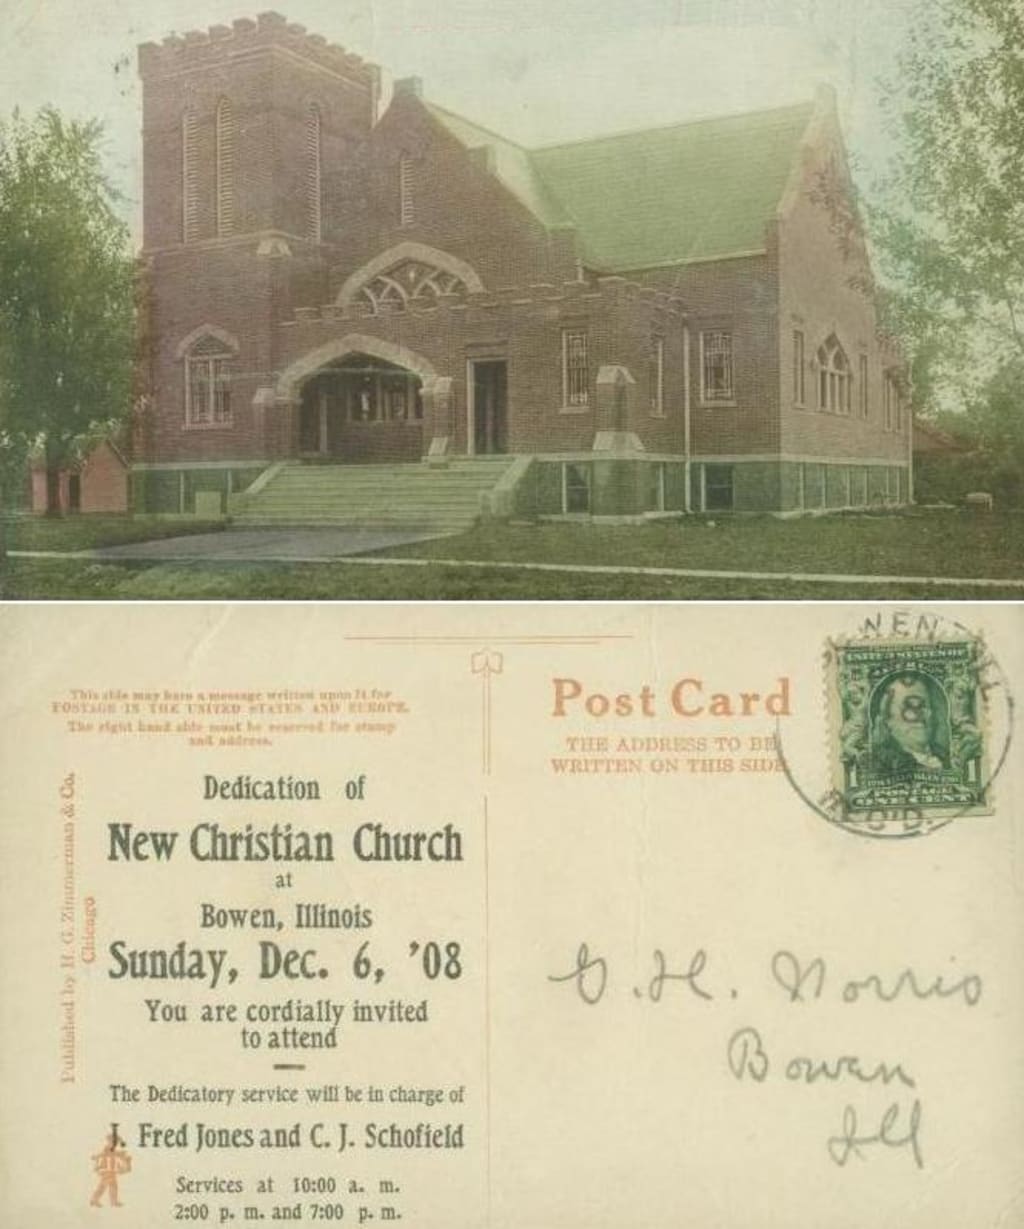 This side may have a message written upon it for
POSTAGE IN THE UNITED STATES AND EUROPE.
The right hand side must be reserved for stamp
and address.
Published by H. G. Zimmerman & Co.
Chicago
Dedication of
New Christian Church
at
Bowen, Illinois
Sunday, Dec. 6, '08
You are cordially invited
to attend
The Dedicatory service will be in charge of
J. Fred Jones and C. J. Schofield
Services at 10:00 a. m.
2:00 p. m. and 7:00 p. m.
Post Card
THE ADDRESS TO BE
WRITTEN ON THIS SIDE
REC'D.
1 1
POSTAGE
ONE CENT
G. H. Norris
Bowen
Ill